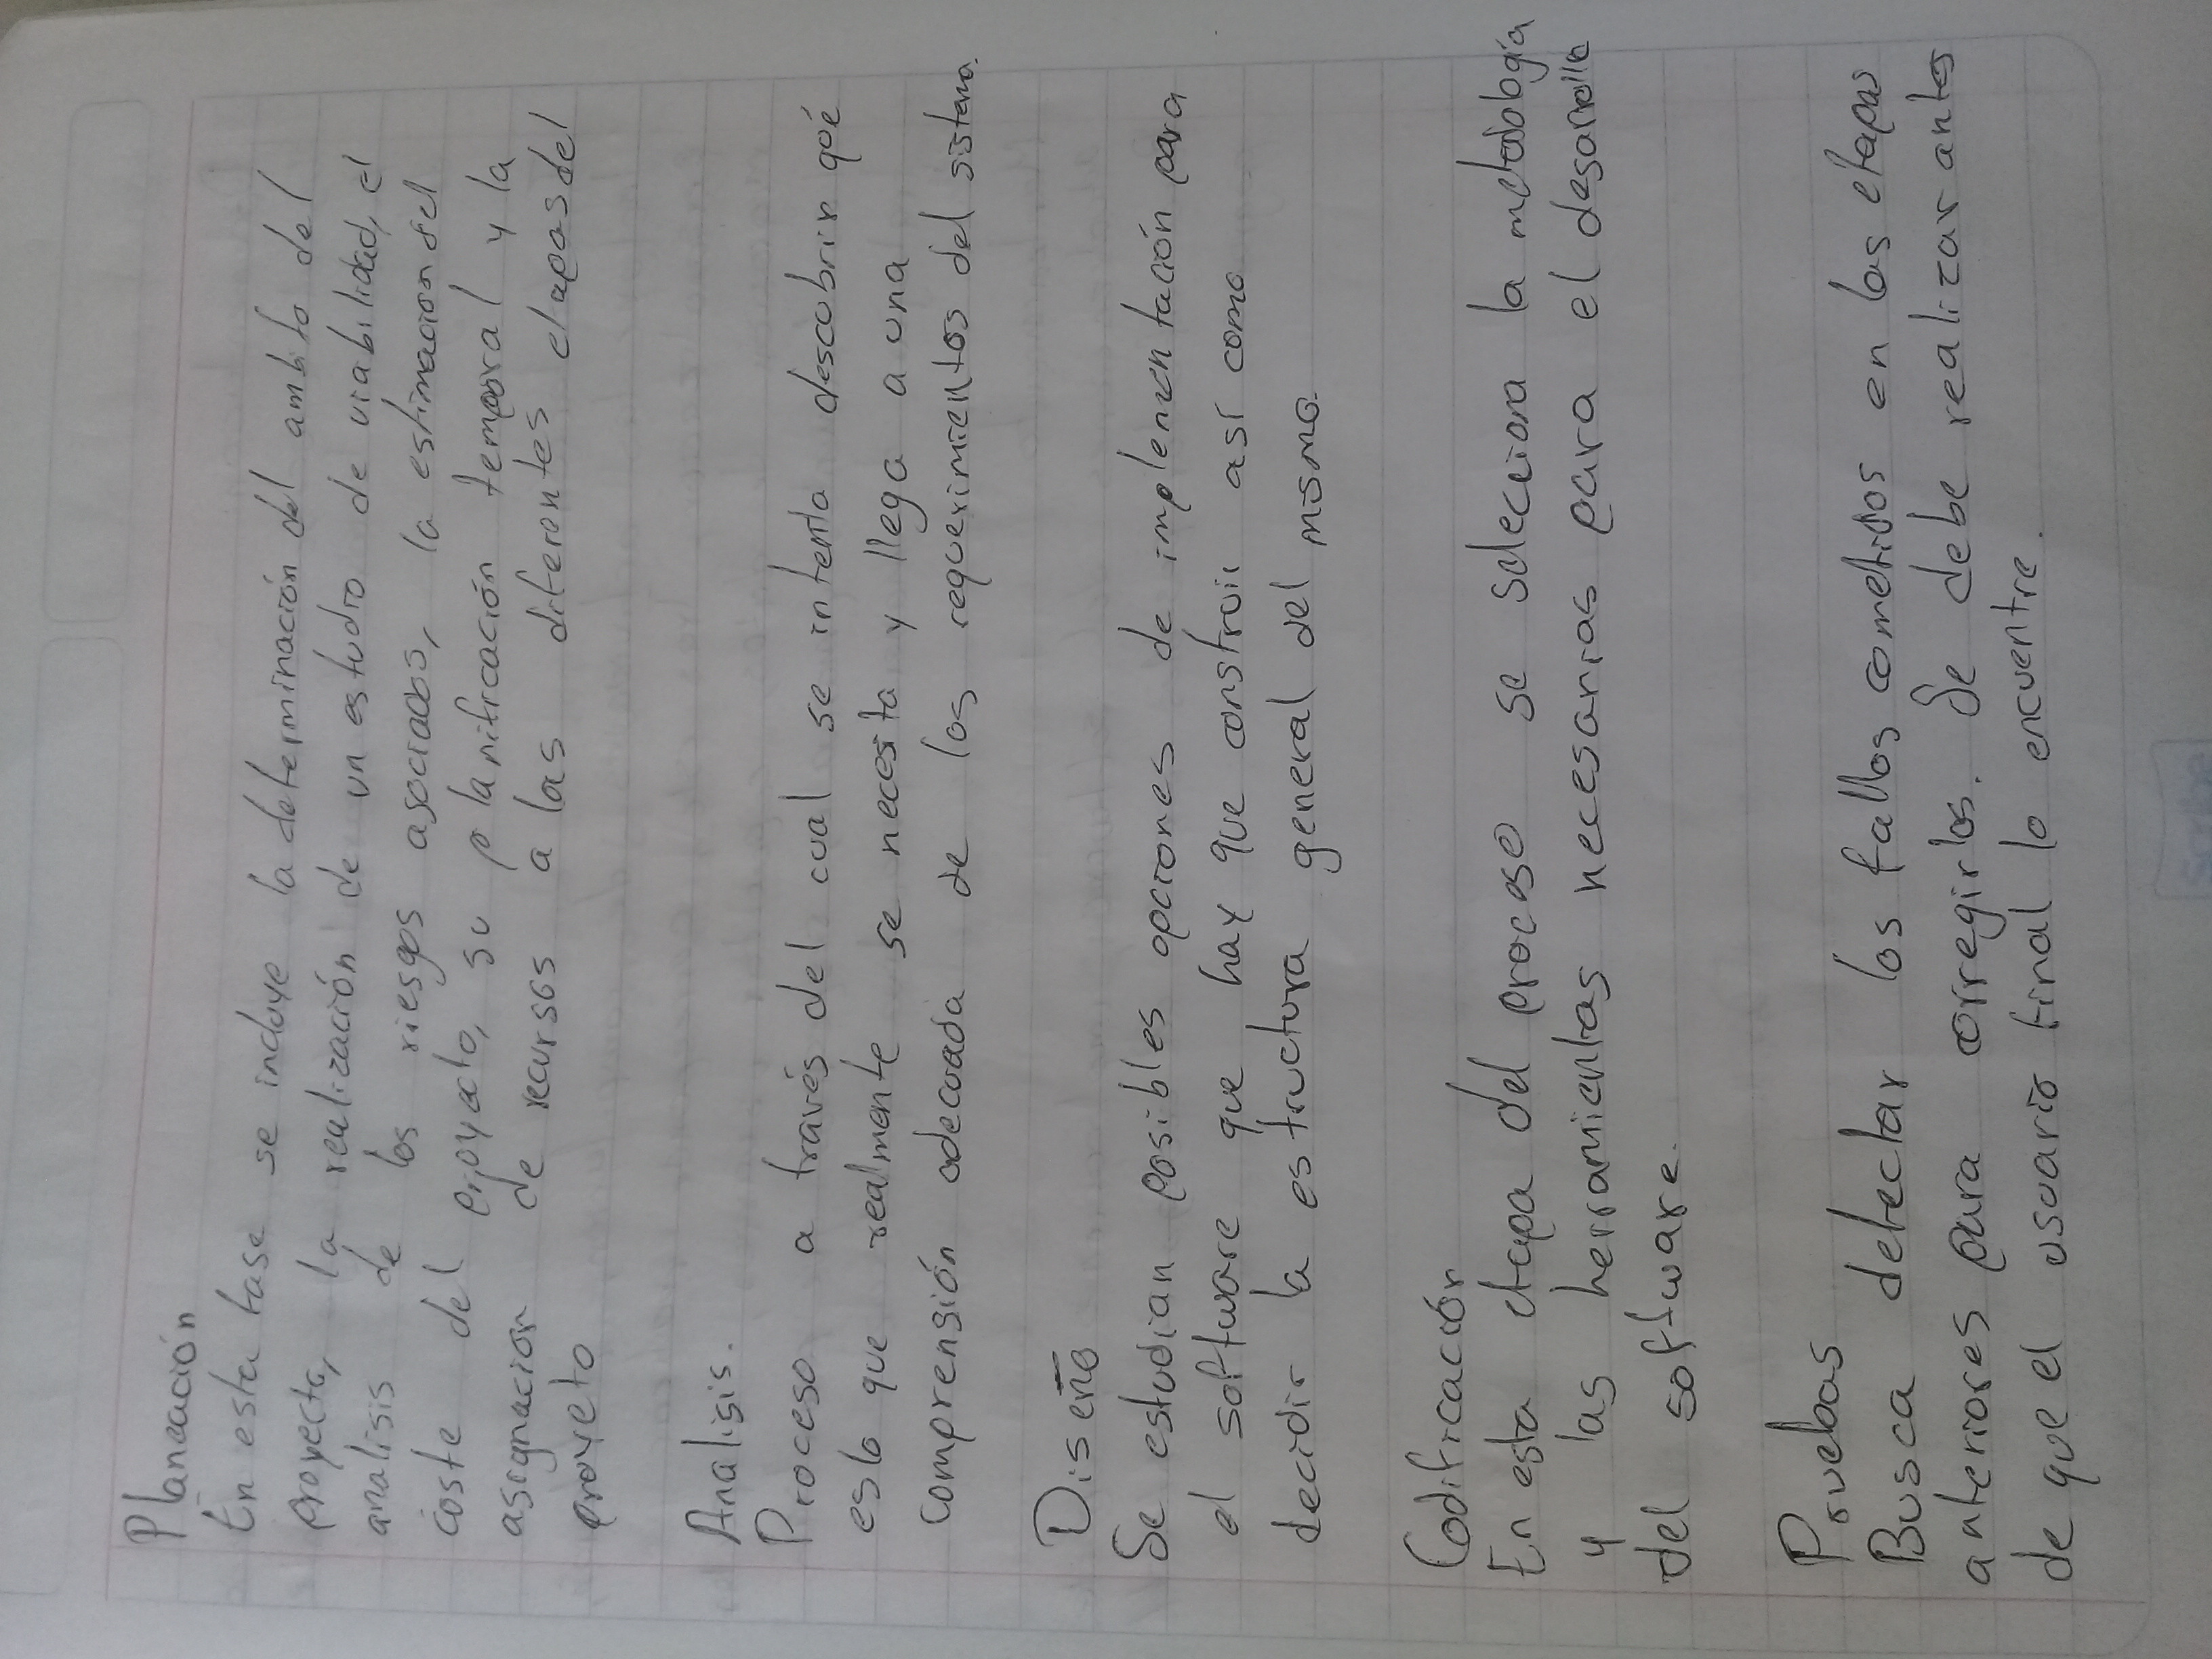 Planeación
En esta fase se incluye la determinación del ambito del
proyecto, la realización de un estudio de viabilidad, el
analisis de los riesgos asociados, la estimacion del
coste del proyecto, su planificación temporal y la
asignacion de recursos a las diferentes etapas del
proyeto
Analisis.
Proceso a través del cual se intenta descubrir qué
es lo que realmente se necesita y llega a una
comprensión adecuada de los requerimientos del sistema.
Diseño
Se estudian posibles opciones de implementación para
el software que hay que construir así como
decidir la estructura general del mismo.
Codificación
En esta etapa del proceso se selecciona la metodología
y las herramientas necesarias para el desarrollo
del software.
Pruebas
Busca detectar los fallos cometidos en las etapas
anteriores para corregirlos. Se debe realizar antes
de que el usuario final lo encuentre.